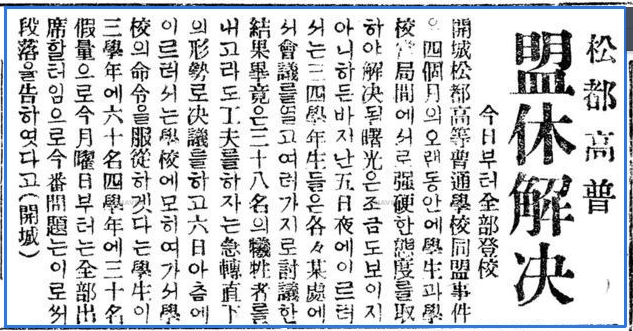 松都高普
盟休解决
今日부터全部登校
開城松都高等普通學校同盟事件
은四個月의오래동안에學生과學
校當局間에서로强硬한態度를取
하야解决될曙光은조금도보이지
아니하든바지난五日夜에이르러
서는三四學年生들은各々某處에
서會議를열고여러가지로討議한
結果畢竟은三十八名의犧牲者를
내고라도工夫를하자는急轉直下
의形勢로决議를하고六日아츰에
이르러서는學校에모히여가서學
校의命令을服從하겟다는學生이
三學年에六十名四學年에三十名
假量으로今月曜日부터는全部出
席할터임으로今番問題는이로써
段落을告하엿다고(開城)